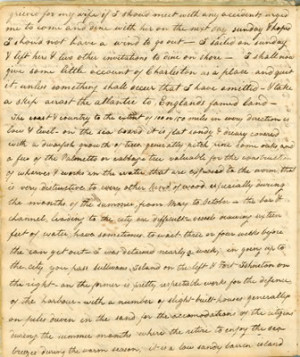 grieve for my wife if I should meet with any accident urged
me to come and dine with her on the next day sunday & hoped
I should not have a wind to go out — I sailed on sunday
& left her & two other invitations to dine on shore — I shall now
give some little account of Charleston as a place and quit
it, unless something shall occur that I have omitted — & take
a step across the atlantic to Englands famed land —
The coast & country to the extent of 100 or 50 miles in every direction is
low & level — on the sea board it is flat sandy & dreary covered
with a dwarfish growth of trees generally pitch pine some oaks and
a few of the Palmetto or cabbage tree valuable for the construct
of wharves & works in the water that are exposed to the worm that
is very destructive to every other kind of wood especially during
the months of the summer, from May to October — the bar &
channel leading to the city are difficult vessels drawing sixteen
feet of water have sometimes to wait three or four weeks before
they can get out — I was detained nearly a week, in going up to
the city you pass Sullivans Island on the left & Fort Johnston on
the right — on the former is pretty respectable works for the defence
of the harbour — with a number of slight built houses generally
on piles driven in the sand for the accomodations of the citizens
during the summer months where they retire to enjoy the sea
breezes during the warm season, it is a low sandy barren island